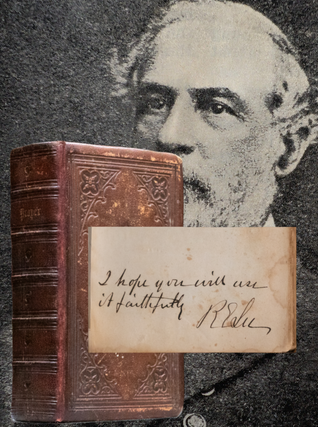 Prayer
I hope you will use
it faithfully
RELee